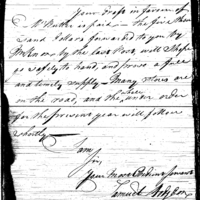 Your Draft in favour of
Mr Butler is paid — the five thou
sand Dollars forwarded to you by
by the last Post, will I hope
go safely to hand, and prove a full
and timely supply — Many stores are
on the road, and the order
for the present year will follow
shortly —
I am
Sir,
Your most Obedient Servant
Samuel Hodgdon